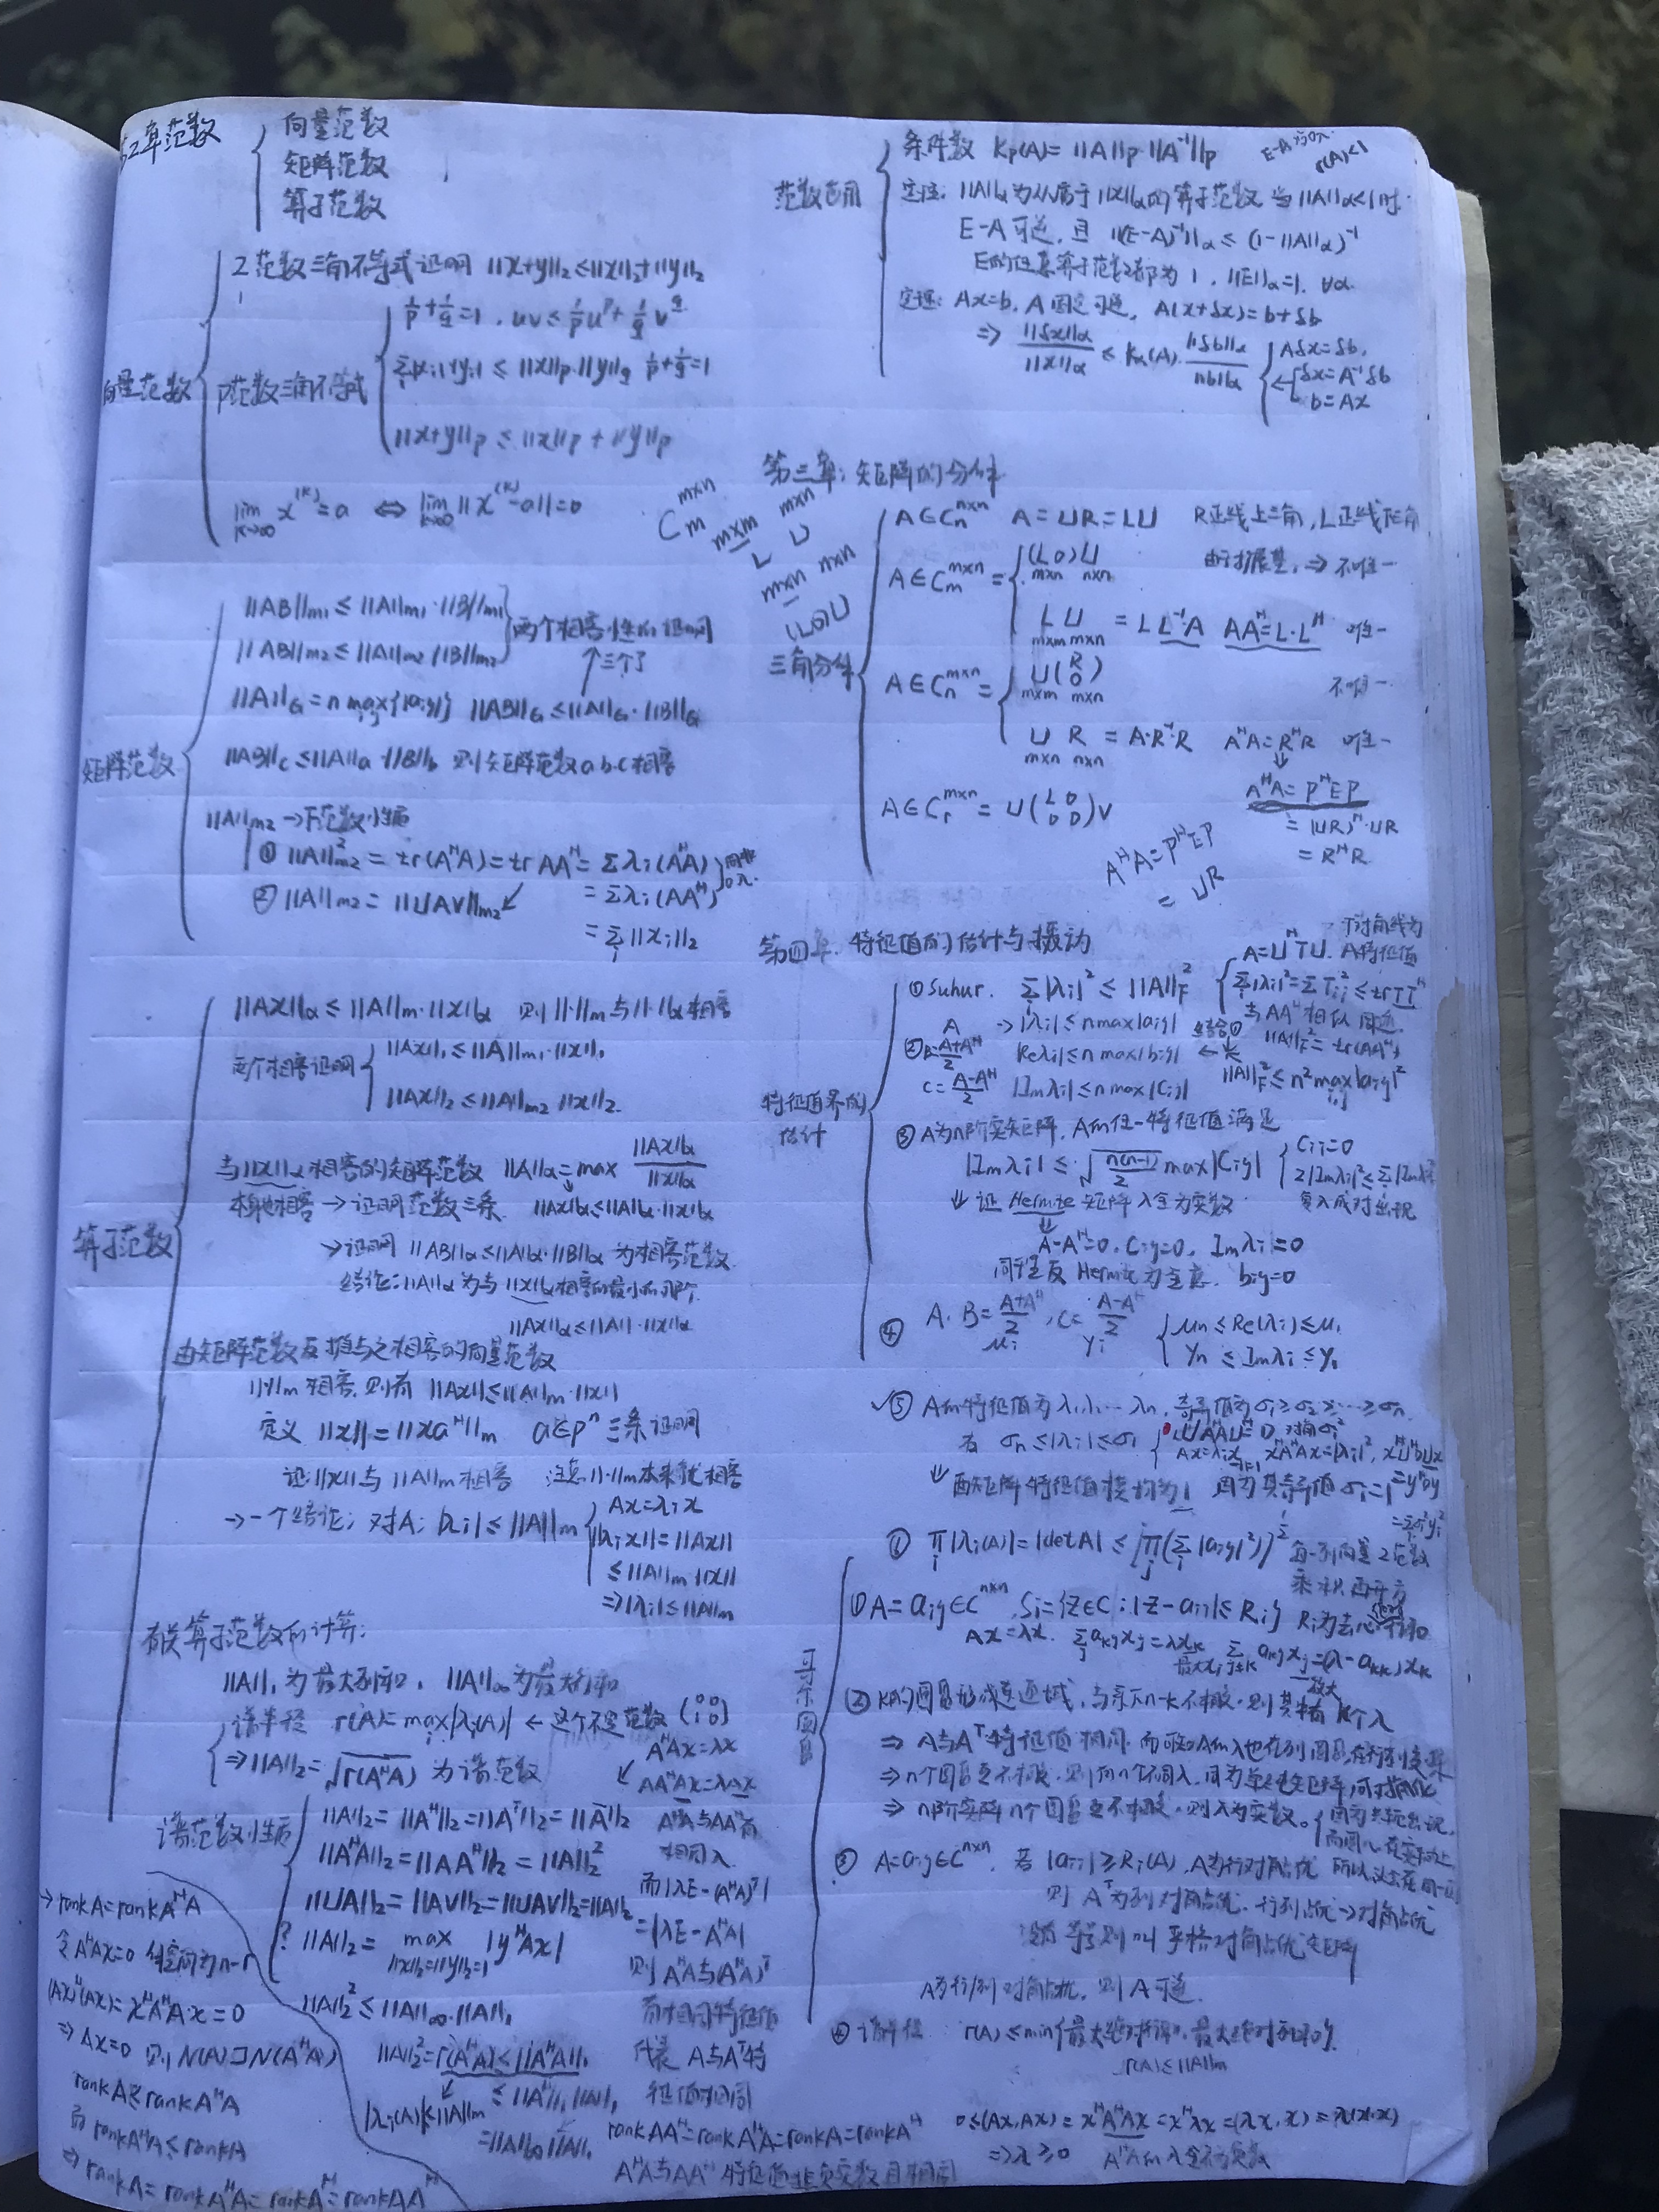 第2章范数
向量范数
矩阵范数
算子范数
向量范数
2范数三角不等式证明 ||x+y||₂≤||x||₂+||y||₂
p范数三角不等式
1/p+1/q=1, uv≤1/p u^p+1/q v^q
Σ|xᵢ||yᵢ| ≤ ||x||p·||y||q 1/p+1/q=1
||x+y||p ≤ ||x||p + ||y||p
lim x^(k)=a ⇔ lim ||x^(k)-a||=0
k→∞ k→∞
矩阵范数
||AB||m₁ ≤ ||A||m₁·||B||m₁
||AB||m₂ ≤ ||A||m₂·||B||m₂
两个相容性的证明
↑三个了
||A||G = n max{|aij|} ||AB||G ≤ ||A||G·||B||G
||AB||c ≤ ||A||a·||B||b 则矩阵范数a.b.c相容
||A||m₂ → F范数性质
① ||A||²m₂ = tr(AᴴA) = tr AAᴴ = Σλi(AᴴA)
= Σλi(AAᴴ)
② ||A||m₂ = ||UAV||m₂
= Σ||xi||₂
算子范数
||Ax||α ≤ ||A||m·||x||α 则||·||m与||·||α相容
两个相容证明
||Ax||₁ ≤ ||A||m₁·||x||₁
||Ax||₂ ≤ ||A||m₂·||x||₂
与||x||α相容的矩阵范数 ||A||α = max ||Ax||α/||x||α
→证明范数三条 ||Ax||α≤||A||α·||x||α
→证明 ||AB||α≤||A||α·||B||α 为相容范数
结论:||A||α 为与||x||α相容的最小的那个
||Ax||α≤||A||·||x||α
由矩阵范数反推与之相容的向量范数
||·||m 相容,则有 ||Ax||≤||A||m·||x||
定义 ||x||=||xaᴴ||m a∈pⁿ 三条证明
证||x||与||A||m相容 注意||·||m本来就相容
→一个结论; 对A; |λi| ≤ ||A||m
Ax=λix
||λix||=||Ax||
≤||A||m·||x||
⇒|λi|≤||A||m
有关算子范数的计算:
||A||₁ 为最大列和, ||A||∞为最大行和
谱半径 r(A)=max|λi(A)| ← 这个不是范数 (0 0 / 1 0)
⇒||A||₂=√r(AᴴA) 为谱范数
AᴴAx=λx
AAᴴAx=λAx
AᴴA与AAᴴ有
相同λ
而|λE-(AᴴA)ᵀ|
=|λE-AᴴA|
则 AᴴA与(AᴴA)ᵀ
有相同特征值
代表 A与Aᵀ特
征值相同
谱范数性质
||A||₂=||Aᴴ||₂=||Aᵀ||₂=||Ā||₂
||AᴴA||₂=||AAᴴ||₂=||A||₂²
||UA||₂=||AV||₂=||UAV||₂=||A||₂
? ||A||₂ = max |yᴴAx|
||x||₂=||y||₂=1
||A||₂² ≤ ||A||∞·||A||₁
||A||₂²=r(AᴴA)≤||AᴴA||₁
≤ ||Aᴴ||₁·||A||₁
|λi(A)|≤||A||m
=||A||∞·||A||₁
→rankA=rankAᴴA
令AᴴAx=0 解空间为n-r
(Ax)ᴴ(Ax)=xᴴAᴴA·x=0
⇒Ax=0 则N(A)⊃N(AᴴA)
rankA≤rankAᴴA
而 rankAᴴA≤rankA
⇒rankA=rankAᴴA=rankAᴴ=rankAAᴴ
rankAAᴴ=rankAᴴA=rankA=rankAᴴ
AᴴA与AAᴴ特征值非负实数且相同
范数应用
条件数 Kp(A)=||A||p·||A⁻¹||p
r(A)<1
定理: ||A||α为从属于||x||α的算子范数,当||A||α<1时.
E-A可逆,且 ||(E-A)⁻¹||α ≤ (1-||A||α)⁻¹
E的任意算子范数都为1, ||E||α=1. ∀α.
定理: Ax=b, A固定可逆, A(x+δx)=b+δb
⇒ ||δx||α/||x||α ≤ Kα(A)·||δb||α/||b||α
Aδx=δb,
δx=A⁻¹δb
b=Ax
第三章: 矩阵的分解
m×n
Cm
m×m m×n
L U
m×n n×n
(L0)U
三角分解
A∈Cn^{n×n} A=UR=LU R正线上三角,L正线下三角
A∈Cm^{m×n} = (L 0)U
m×n n×n
由于扩展基,⇒不唯一
L U = L L⁻¹A AAᴴ=L·Lᴴ 唯一
m×m m×n
A∈Cn^{m×n} = U(R/0) 不唯一
m×m m×n
U R = A·R⁻¹R AᴴA=RᴴR 唯一
m×n n×n
AᴴA=PᴴEP
=(UR)ᴴ·UR
=RᴴR
A∈Cr^{m×n} = U(L 0 / 0 0)V
AᴴA=PᴴEP
=UR
第四章 特征值的估计与摄动
特征值界的估计
①Suhur. Σ|λi|² ≤ ||A||F²
A=UᴴTU. A特征值
T对角线为
Σ|λi|²=ΣTii²≤trTTᴴ
与AAᴴ相似
||A||F²=tr(AAᴴ)
||A||F²≤n²max|aij|²
A →|λi|≤n max|aij| 结合①
②B=(A+Aᴴ)/2 |Reλi|≤n max|bij|
C=(A-Aᴴ)/2 |Imλi|≤n max|Cij|
③A为n阶实矩阵, A的任一特征值满足
|Imλi| ≤ √(n(n-1)/2) max|Cij|
Cii=0
复λ成对出现
↓ 证 Hermite 矩阵 λ全为实数
A-Aᴴ=0, Cij=0, Imλi=0
同理反Hermite为全虚, bij=0
④ A. B=(A+Aᴴ)/2, C=(A-Aᴴ)/2
μi γi
μn≤Re(λi)≤μ₁
γn≤Imλi≤γ₁
✓⑤ A的特征值为λ₁λ₂…λn, 奇异值为σ₁≥σ₂≥…≥σn
有 σn≤|λi|≤σ₁
Ax=λix, xᴴAᴴAx=|λi|²
↓酉矩阵特征值模均为1 因为其奇异值σi=1
⑥ Π|λi(A)|=|detA|≤[Π(Σ|aij|²)]^½ 每一列向量2范数
乘积再开方
盖尔圆盘
①A=aij∈C^{n×n}, Si={z∈C:|z-aii|≤Ri} Ri为去心行和
Ax=λx. Σakjxj=λxk Σakjxj=(λ-akk)xk
②k个圆盘形成连通域,与余下n-k不相交,则其中有k个λ
⇒A与Aᵀ特征值相同,
⇒n个圆盘互不相交,则有n个不同λ,
⇒n阶实阵n个圆盘互不相交,则λ为实数。
③ A=aij∈C^{n×n}, 若|aii|≥Ri(A), A为行对角占优
则Aᵀ为列对角占优. 行列占优→对角占优
没有等号则叫严格对角占优矩阵
A为行/列对角占优, 则A可逆.
④谱半径 r(A)≤min{最大绝对行和, 最大绝对列和}
r(A)≤||A||m
0≤(Ax,Ax)=xᴴAᴴAx=xᴴλx=(λx,x)=λ(x,x)
⇒λ≥0 AᴴA的λ全不为负